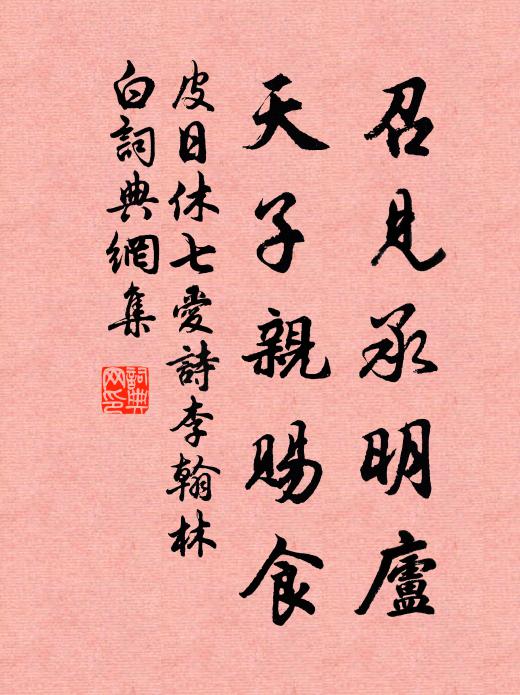 召見承明廬
天子親賜食
皮日休七愛詩李翰林
白詞典網集
詞典网印